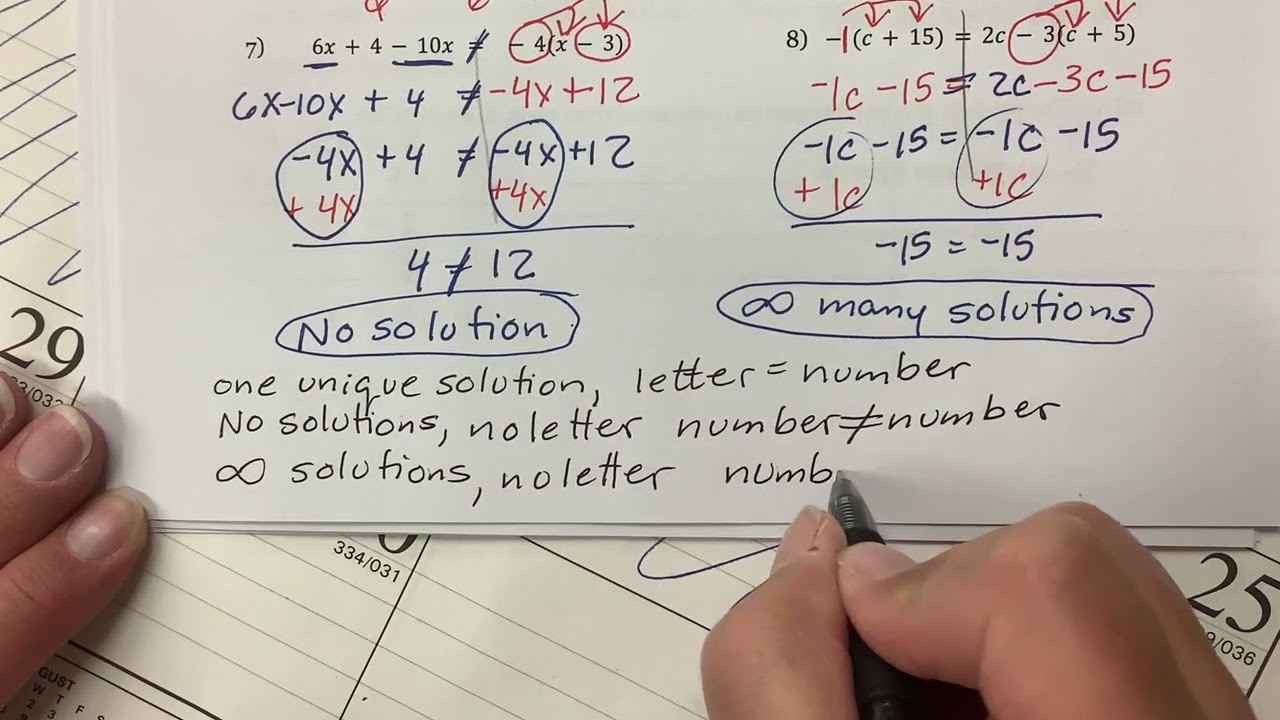 7) 6x + 4 − 10x ≠ − 4(x − 3)
6x-10x + 4 ≠ -4x+12
-4x + 4 ≠ -4x+12
+ 4x +4x
4 ≠ 12
No solution
8) −1(c + 15) = 2c − 3(c + 5)
-1c -15 = 2c-3c-15
-1c -15 = -1c -15
+ 1c +1c
-15 = -15
∞ many solutions
one unique solution, letter = number
No solutions, no letter number≠number
∞ solutions, no letter numb
29
334/031
25
GUST
W T F S
2 3